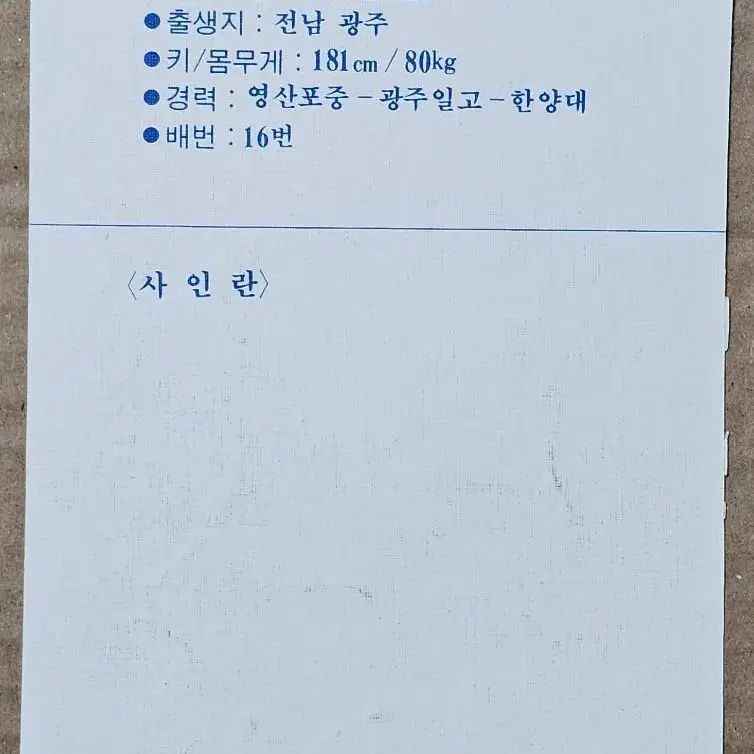 ●출생지 : 전남 광주
●키/몸무게 : 181cm / 80kg
●경력 : 영산포중-광주일고-한양대
●배번 : 16번
〈사 인 란〉